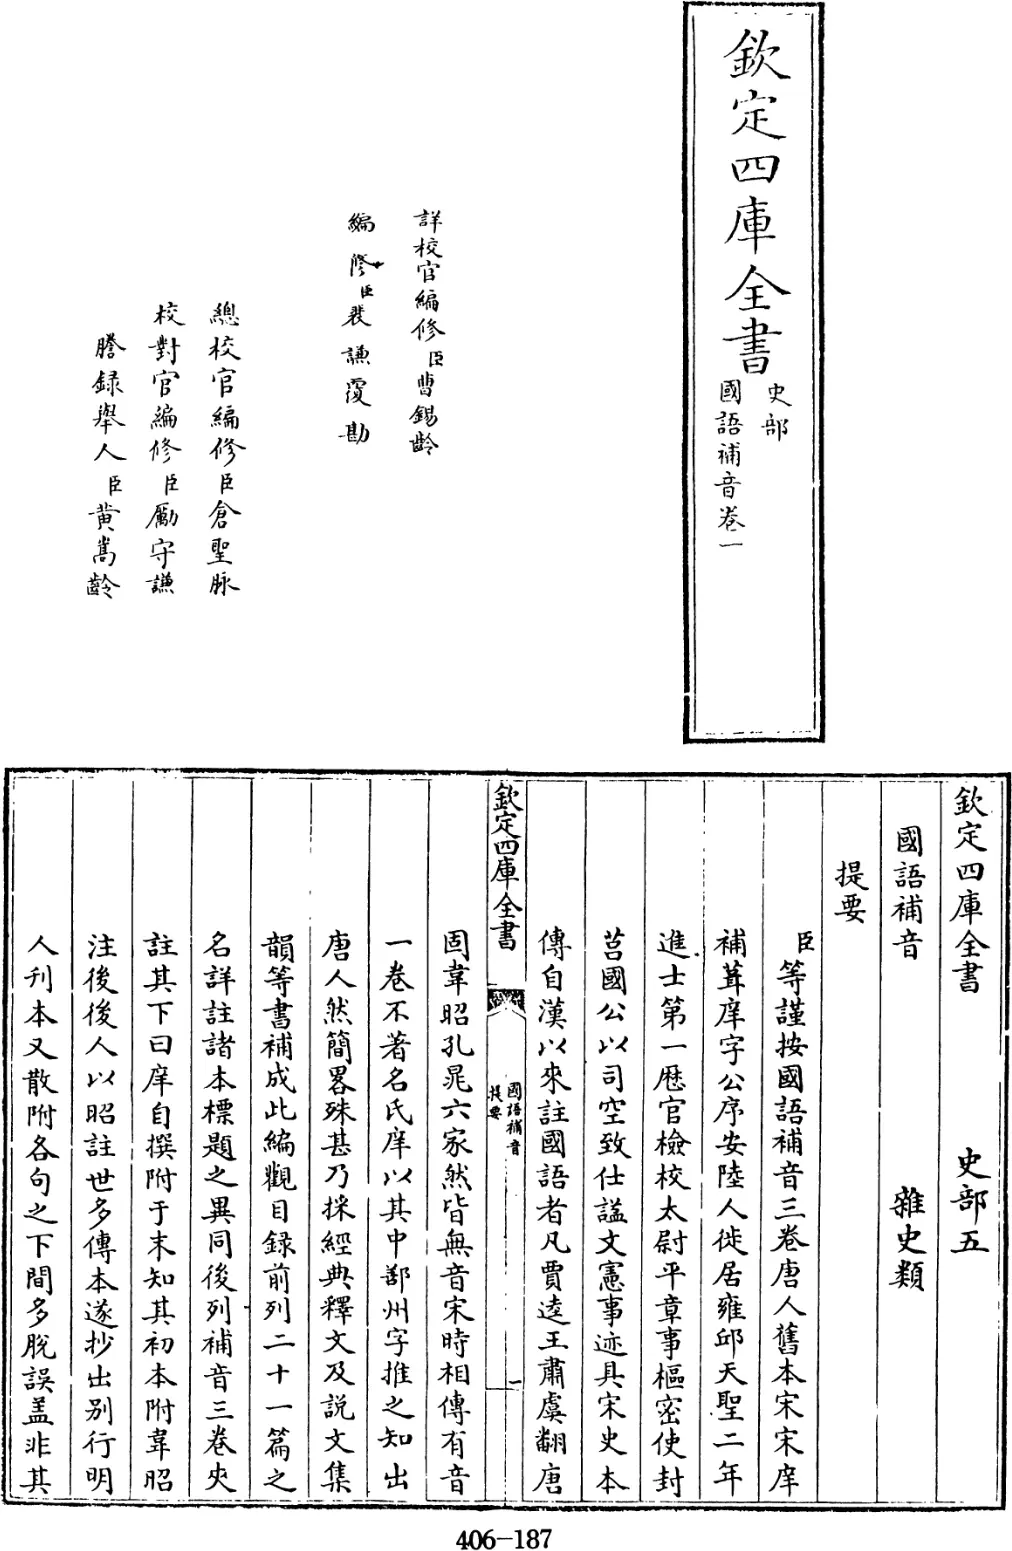 欽定四庫全書
史部
國語補音卷一
詳校官編修臣曹錫齡
編修臣裴謙覆勘
總校官編修臣倉聖脉
校對官編修臣勵守謙
謄録舉人臣黄嵩齡
欽定四庫全書 史部五
國語補音 雜史類
提要
臣等謹按國語補音三卷唐人舊本宋宋庠
補葺庠字公序安陸人徙居雍邱天聖二年
進士第一歴官檢校太尉平章事樞密使封
莒國公以司空致仕謚文憲事迹具宋史本
傳自漢以來註國語者凡賈逵王肅虞翻唐
欽定四庫全書
國語補音
提要
一
固韋昭孔晁六家然皆無音宋時相傳有音
一卷不著名氏庠以其中鄯州字推之知出
唐人然簡畧殊甚乃採經典釋文及説文集
韻等書補成此編觀目録前列二十一篇之
名詳註諸本標題之異同後列補音三卷夾
註其下曰庠自撰附于末知其初本附韋昭
注後後人以昭註世多傳本遂抄出别行明
人刊本又散附各句之下間多脱誤盖非其
406-187